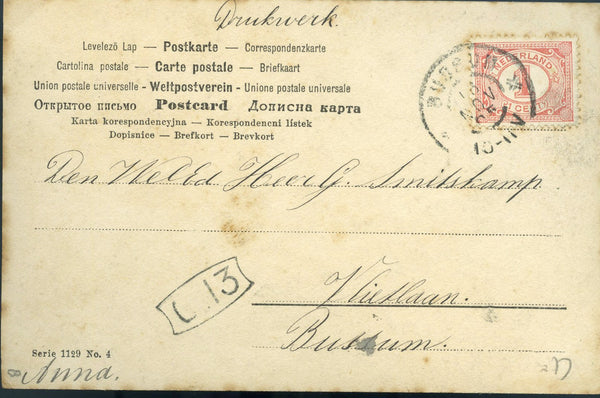 Drukwerk.
Levelező Lap — Postkarte — Correspondenzkarte
Cartolina postale — Carte postale — Briefkaart
Union postale universelle - Weltpostverein - Unione postale universale
Открытое письмо Postcard Дописна карта
Karta korespondencyjna — Korespondencní lístek
Dopisnice — Brefkort — Brevkort
NEDERLAND
1
CENT
BUSSUM
NOV
Den WelEd Heer G. Smitskamp.
C.13
Vlietlaan.
Bussum.
Serie 1129 No. 4
Anna.